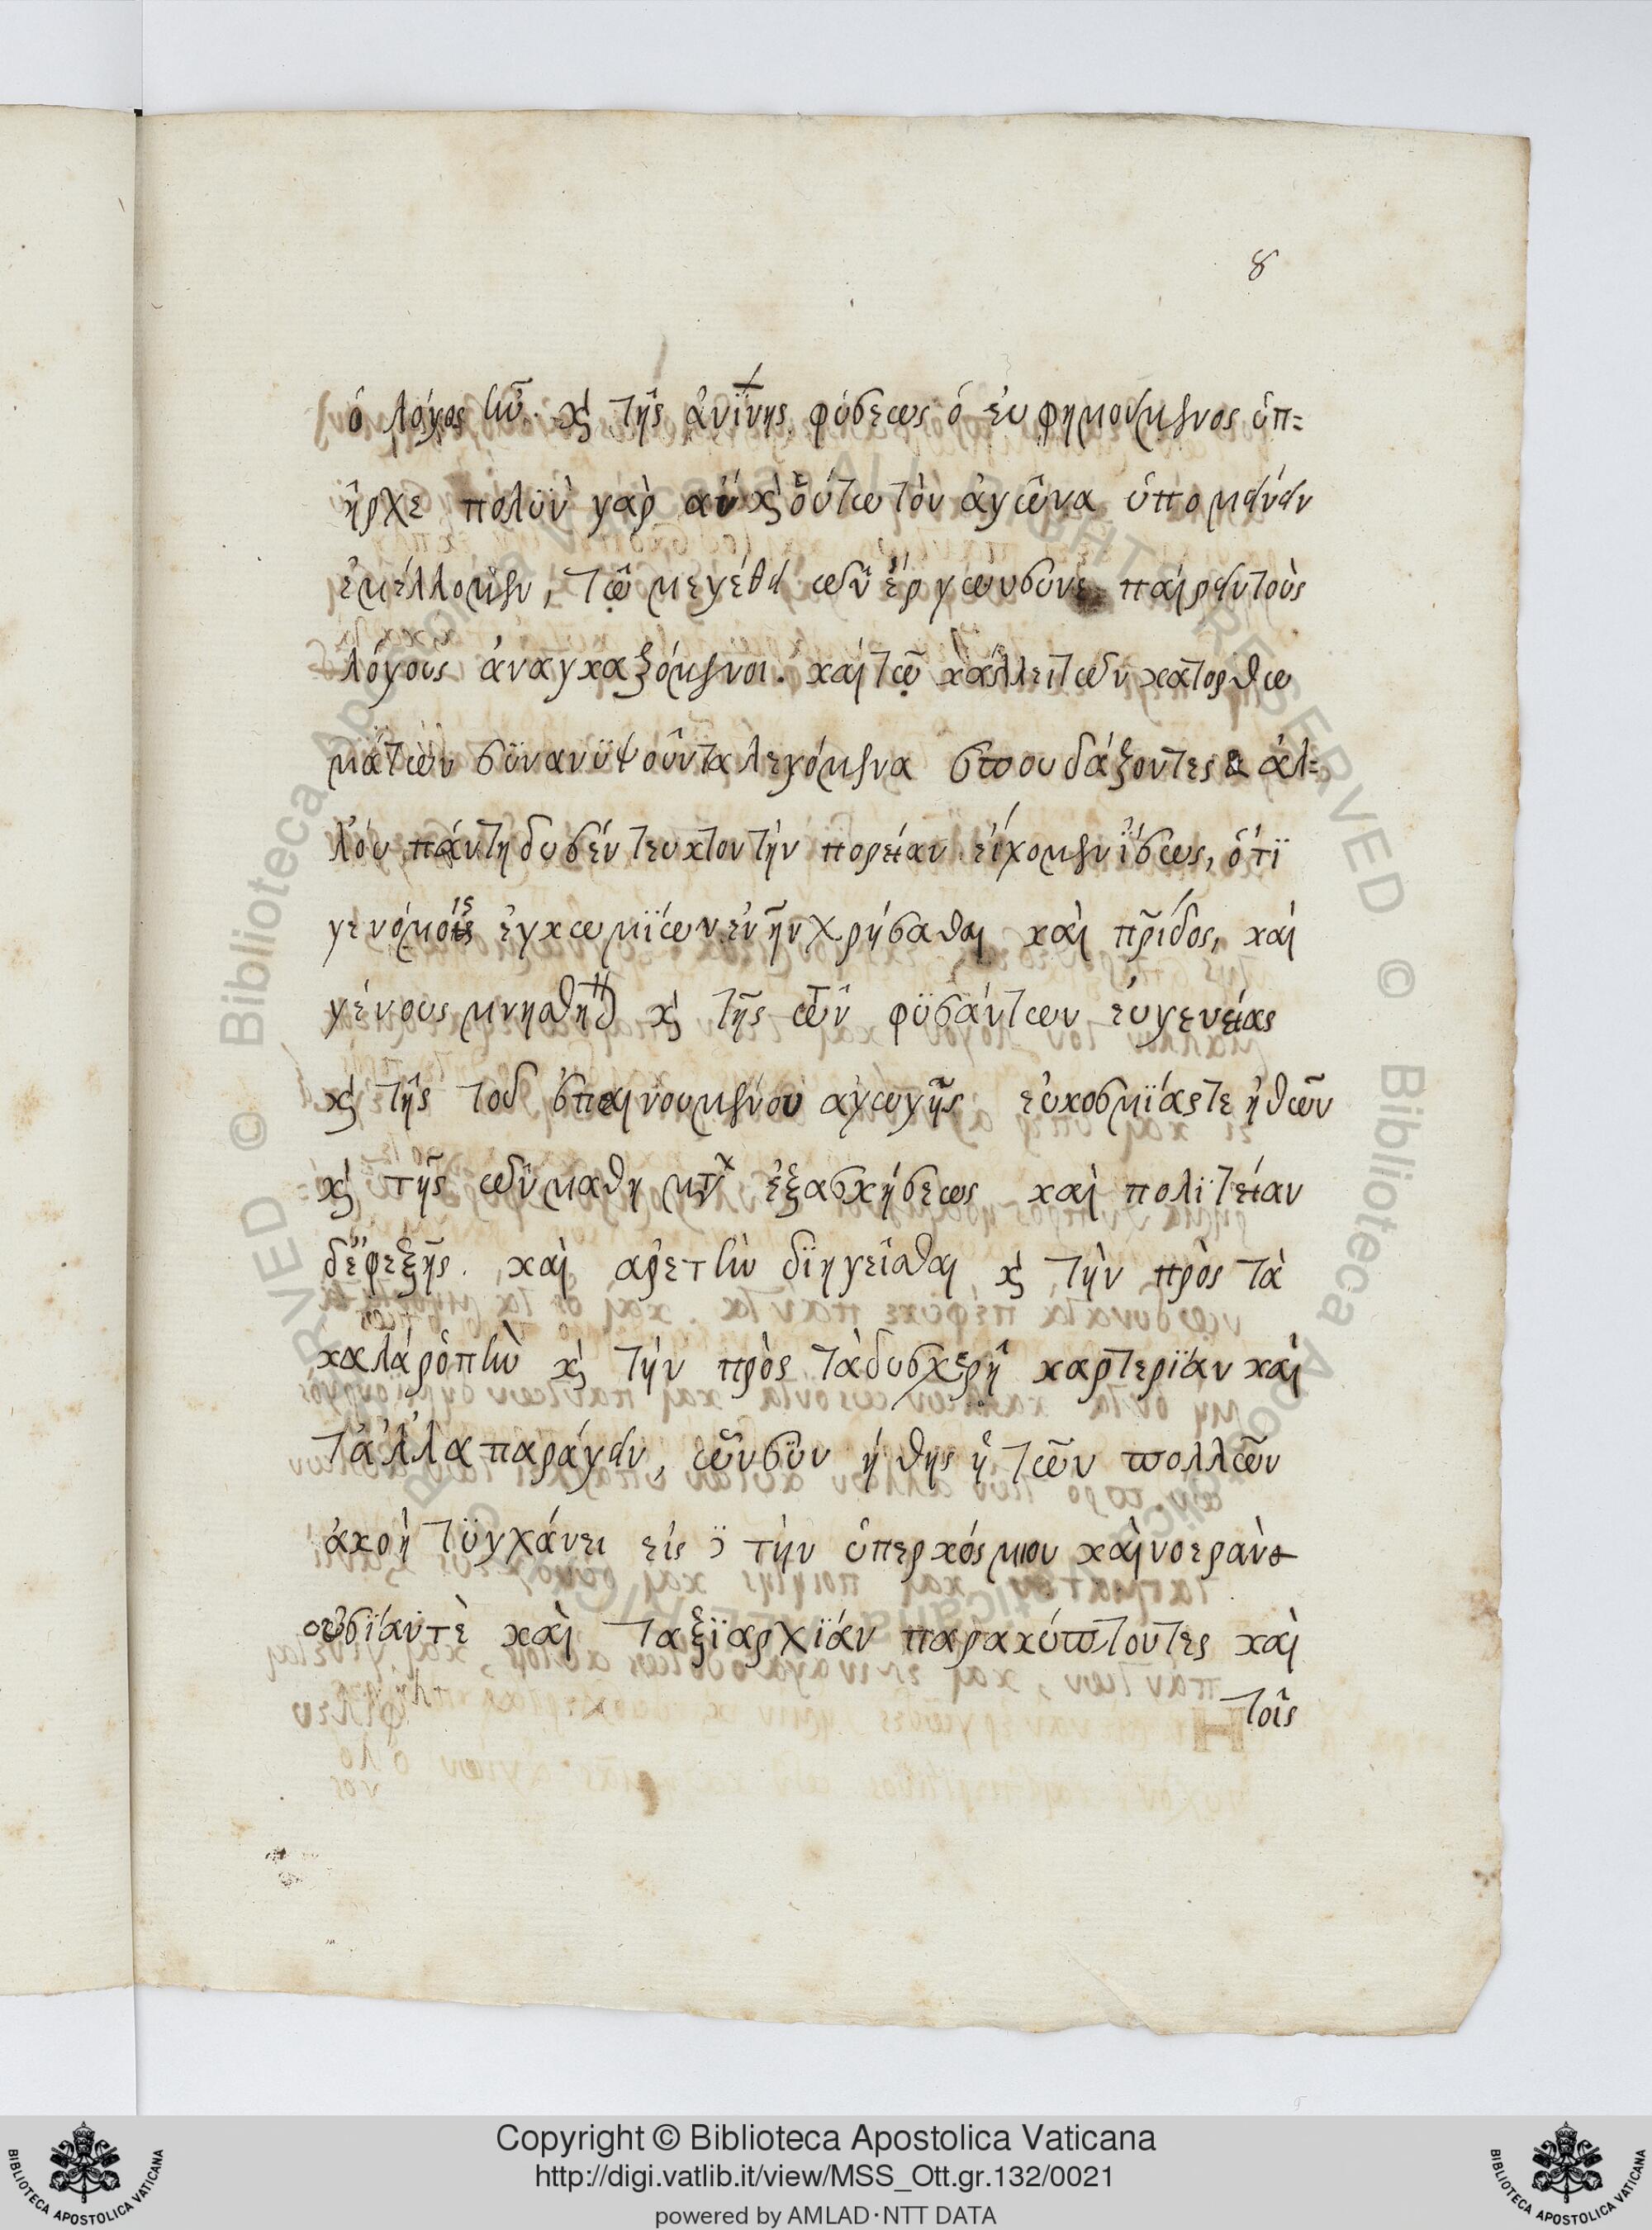 8
ὁ λόγος ἦν. καὶ τῆς ἀνΐνης φύσεως ὁ ἐυφημούμενος ὑπ=
ῆρχε πολὺν γὰρ αν καὶ οὕτω τὸν ἀγῶνα ὑπομένειν
ἐμέλλομεν, τῷ μεγέθει τῶν ἔργων συνε παίρειν τοὺς
λόγους ἀναγκαζόμενοι. καὶ τῷ κάλλει τῶν κατορθω
μάτων συνανϋψοῦν τα λεγόμενα σπουδάζοντες ἀλ=
λ' ου πάντη δυσέντευκτον τὴν πορείαν εἴχομεν ἴσως, ὅτϊ
γενόμοις ἐγκωμϊων ἐνῆν χρήσασθαι καὶ πρ̃ίδος, καὶ
γένους μνησθῆναι καὶ τῆς τῶν φϋσάντων εὐγενείας
καὶ τῆς τοῦ ἐπαινουμένου αγωγῆς εὐκοσμϊάς τε ἠθῶν
καὶ τῆς τῶν μαθημτ̃ ἐξασκήσεως καὶ πολιτείαν
δ' ἐφεξῆς. καὶ αρετὴν διηγεῖσθαι καὶ τὴν πρὸς τὰ
καλὰ ῥοπὴν καὶ τὴν πρὸς τὰ δυσχερῆ καρτερΐαν καὶ
τἄλλα παράγειν, ὧν σϋν ήθης ἡ τῶν πολλῶν
ἀκοὴ τϋγχάνει εἰς ϊ τὴν ὑπερκόσμιον καὶ νοερὰν
οὐσίαν τὲ καὶ ταξϊαρχΐαν παρακύπτοντες καὶ
τοῖς
Copyright © Biblioteca Apostolica Vaticana
http://digi.vatlib.it/view/MSS_Ott.gr.132/0021
powered by AMLAD·NTT DATA